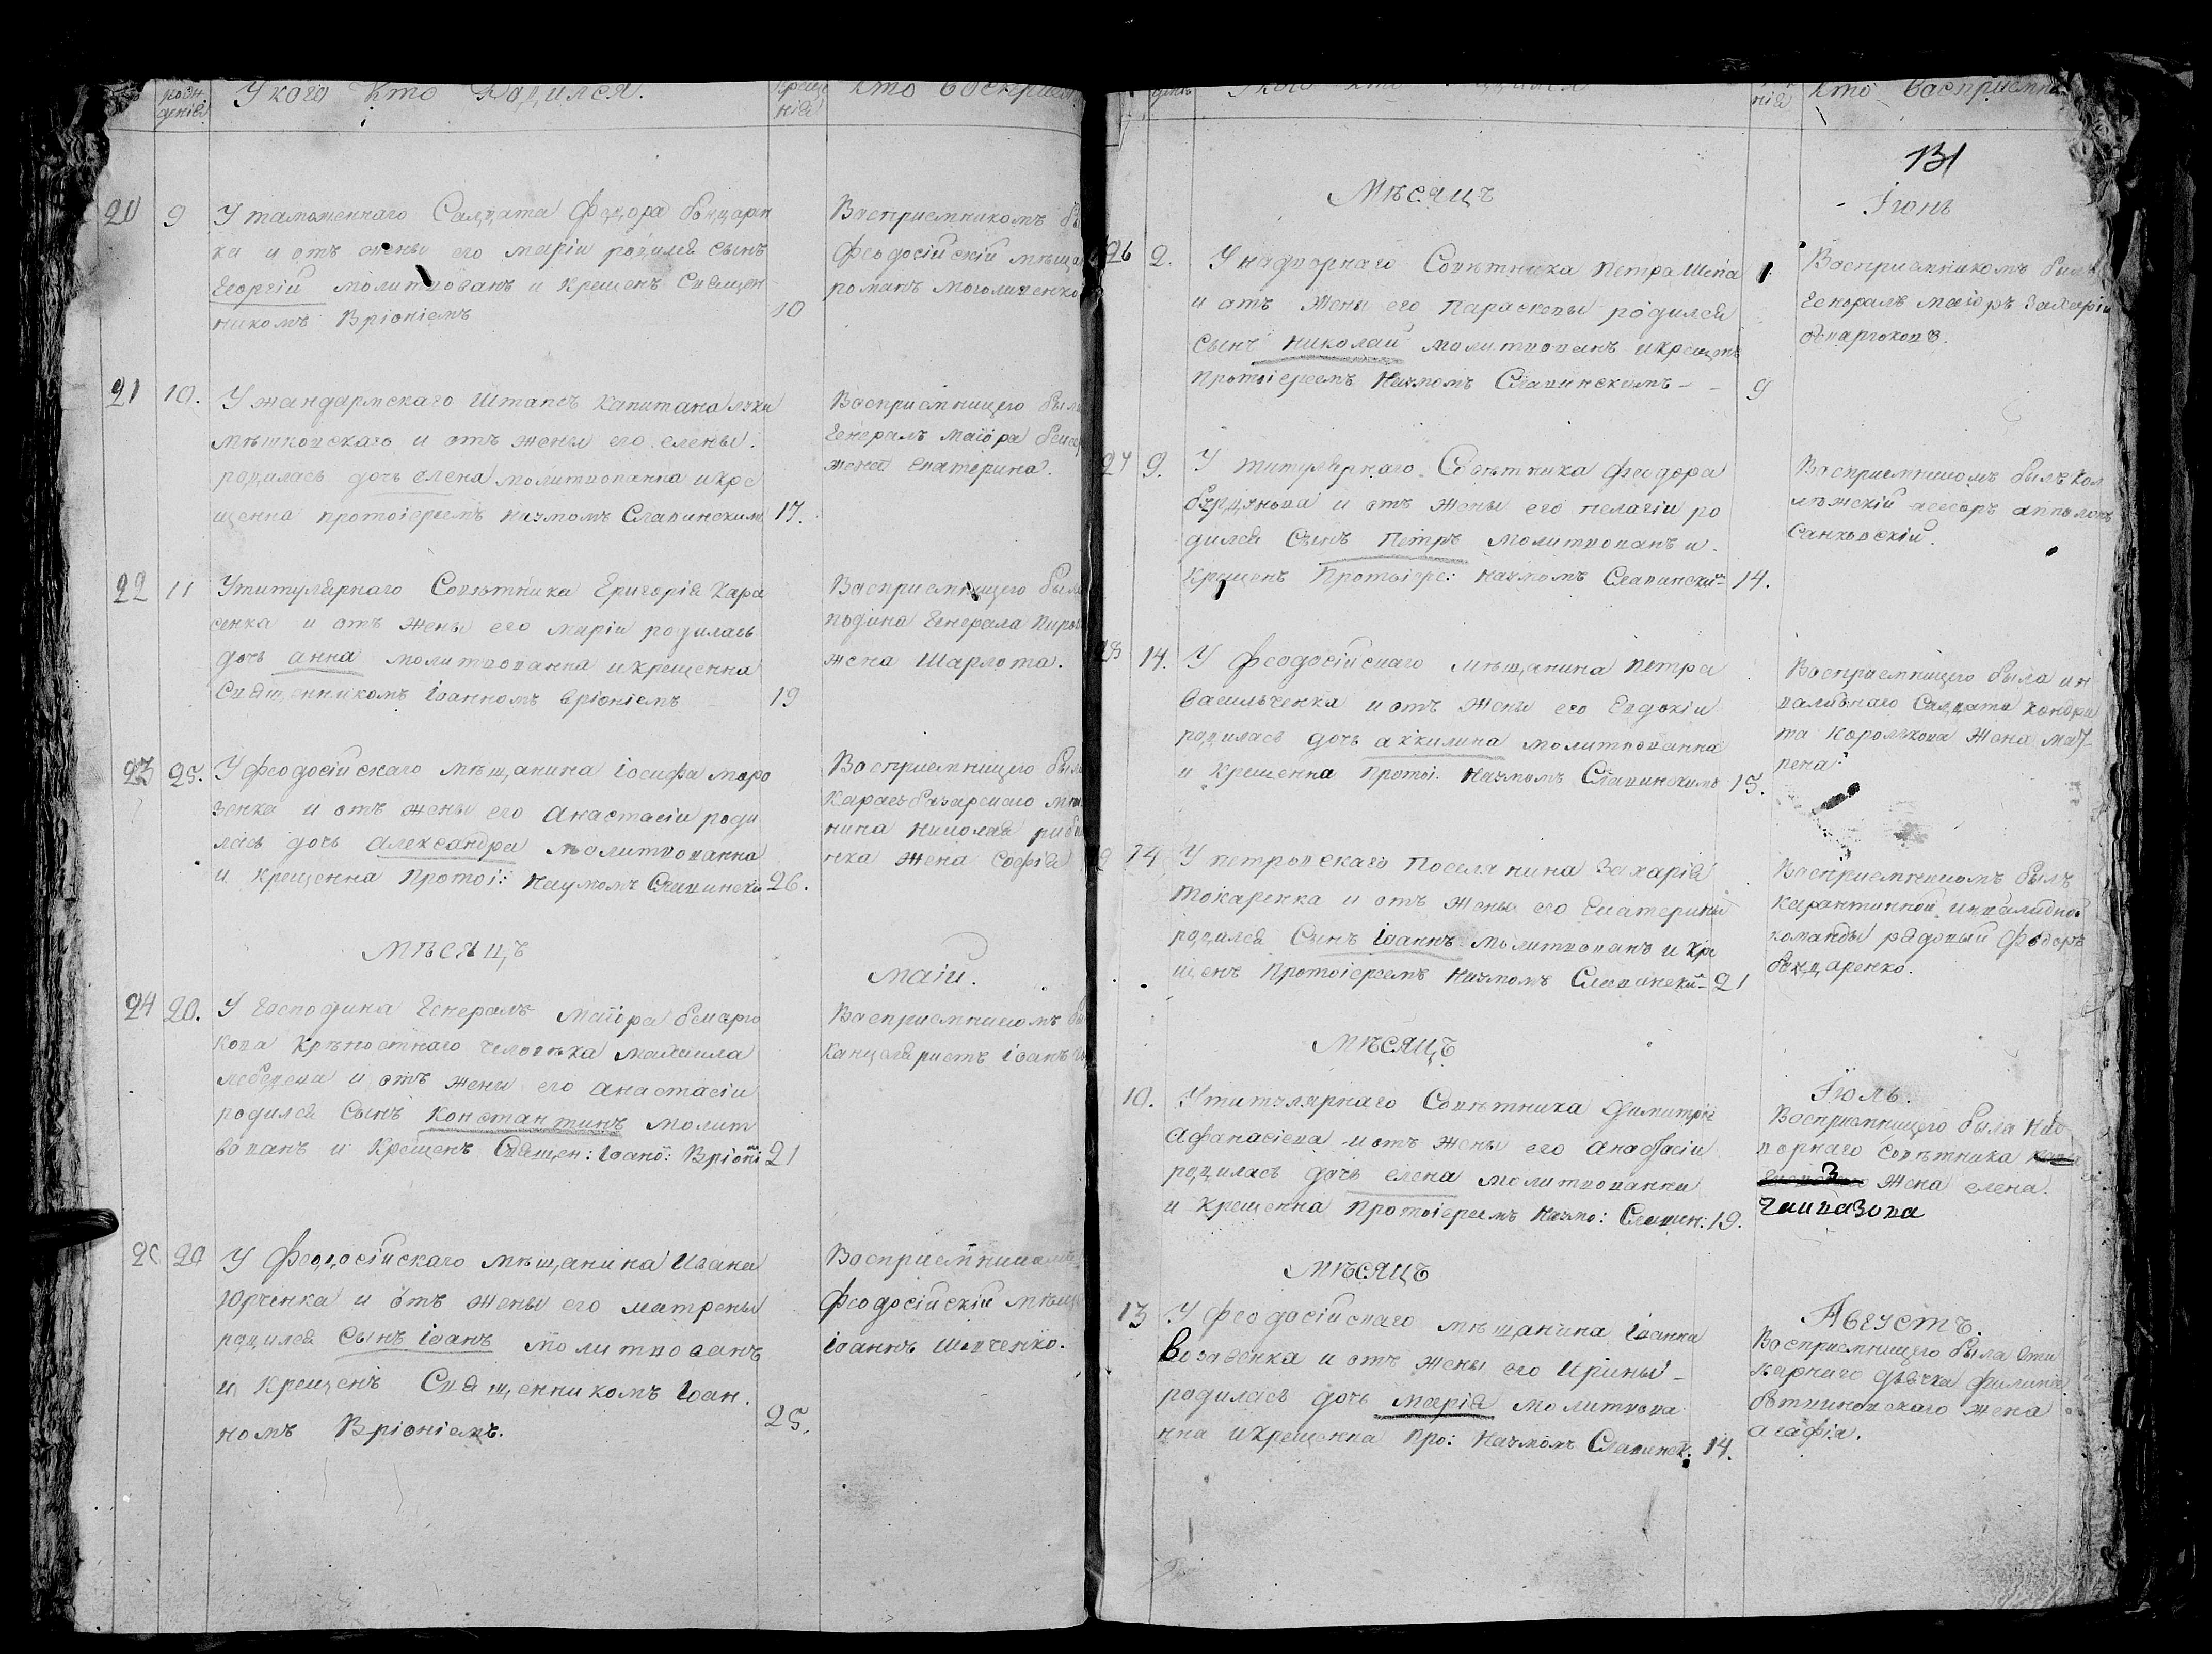 рож
денія
У кого Кто Родился.
Креще
нія
Кто Восприем
20 9 У таможеннаго Салдата Федора бондарен
ка и отъ жены его маріи родился сынъ
Георгій молитвованъ и крещенъ Священ
никомъ Вріоніемъ 10
Восприемникомъ бы
Феодосійскій мѣща
романъ
21 10. У жандармскаго Штапсъ Капитана луки
мѣтковскаго и отъ жены его елены.
родилась дочь елена молитвованна и кре
щенна протоіереемъ Наумомъ Славинскимъ 17.
Восприемницею была
Генералъ маіора
жена екатерина.
22 11 У титулярнаго Совѣтника Григорія Хара
сенка и отъ жены его маріи родилась
дочь анна молитвованна и крещенна
Священникомъ іоанномъ вріоніемъ 19
Восприемницею была
подина Генерала
жена Шарлота.
23 25. У феодосійскаго мѣщанина іосифа моро
зенка и отъ жены его Анастасіи роди
лась дочь александра молитвованна
и крещенна Протоі: Наумомъ Славински 26.
Восприемницею была
Карасъбазарскаго мѣщ
нина николая
нка жена софія
мѣсяцъ
маіи.
24 20. У Господина Генералъ маіора бемарго
кова крѣпостнаго человѣка михаила
лебедева и отъ жены его анастасіи
родился сынъ Константинъ молит
вованъ и Крещенъ Священ: іоано: Вріоні 21
Восприемникомъ бы
Канцеляристъ іоанъ
25 20 У Феодосійскаго мѣщанина ивана
Юрченка и отъ жены его матрены
родился сынъ іоанъ молитвованъ
и крещенъ Священникомъ іоан.
номъ Вріоніемъ. 25.
Восприемникомъ
феодосійскій мѣщ
іоаннъ шевченко.
нія
Кто Восприемн
131
Мѣсяцъ
Іюнь
26 2. У надворнаго Совѣтника петра
и отъ жены его парасковы родился
сынъ николай молитвованъ и крещенъ
протоіереемъ Наумомъ Славинскимъ 9
Восприемникомъ былъ
Генералъ маіоръ Захарій
27 9. У титулярнаго Совѣтника феодора
и отъ жены его пелагіи ро
дился сынъ Петръ молитвованъ и.
Крещенъ Протоіере: Наумомъ Славински 14.
Восприемникомъ былъ кол
лѣжскій асесоръ апполонъ
Санковскій.
28 14. У феодосійскаго мѣщанина петра
васильченка и отъ жены его Евдокіи
родилась дочь аккилина молитвованна
и Крещенна Протоі. Наумомъ Славинскимъ 15.
Восприемницею была ин
валиднаго Салдата кондра
та Королькова жена мат
рена.
14 У петровскаго Поселянина Захарія
Токаренка и отъ жены его Екатерины
родился Сынъ іоаннъ молитвованъ и кре
щенъ Протоіереемъ Наумомъ Славински 21
Восприемникомъ былъ
карантинной инвалидной
команды рядовый Федоръ
бондаренко.
мѣсяцъ
Іюль.
10. У титулярнаго Совѣтника Димитрія
Афанасіева и отъ жены его анастасіи
родилась дочь елена молитвованна
и Крещенна Протоіереемъ Наумо: Славин: 19.
Восприемницею была над
ворнаго совѣтника
жена елена.
мѣсяцъ
Августъ.
13 У феодосійскаго мѣщанина іоанна
и отъ жены его ирины
родилась дочь марія молитвова
нна и крещенна Про: Наумомъ Славинск: 14.
Восприемницею была
дьячка филипа
жена
агафія.